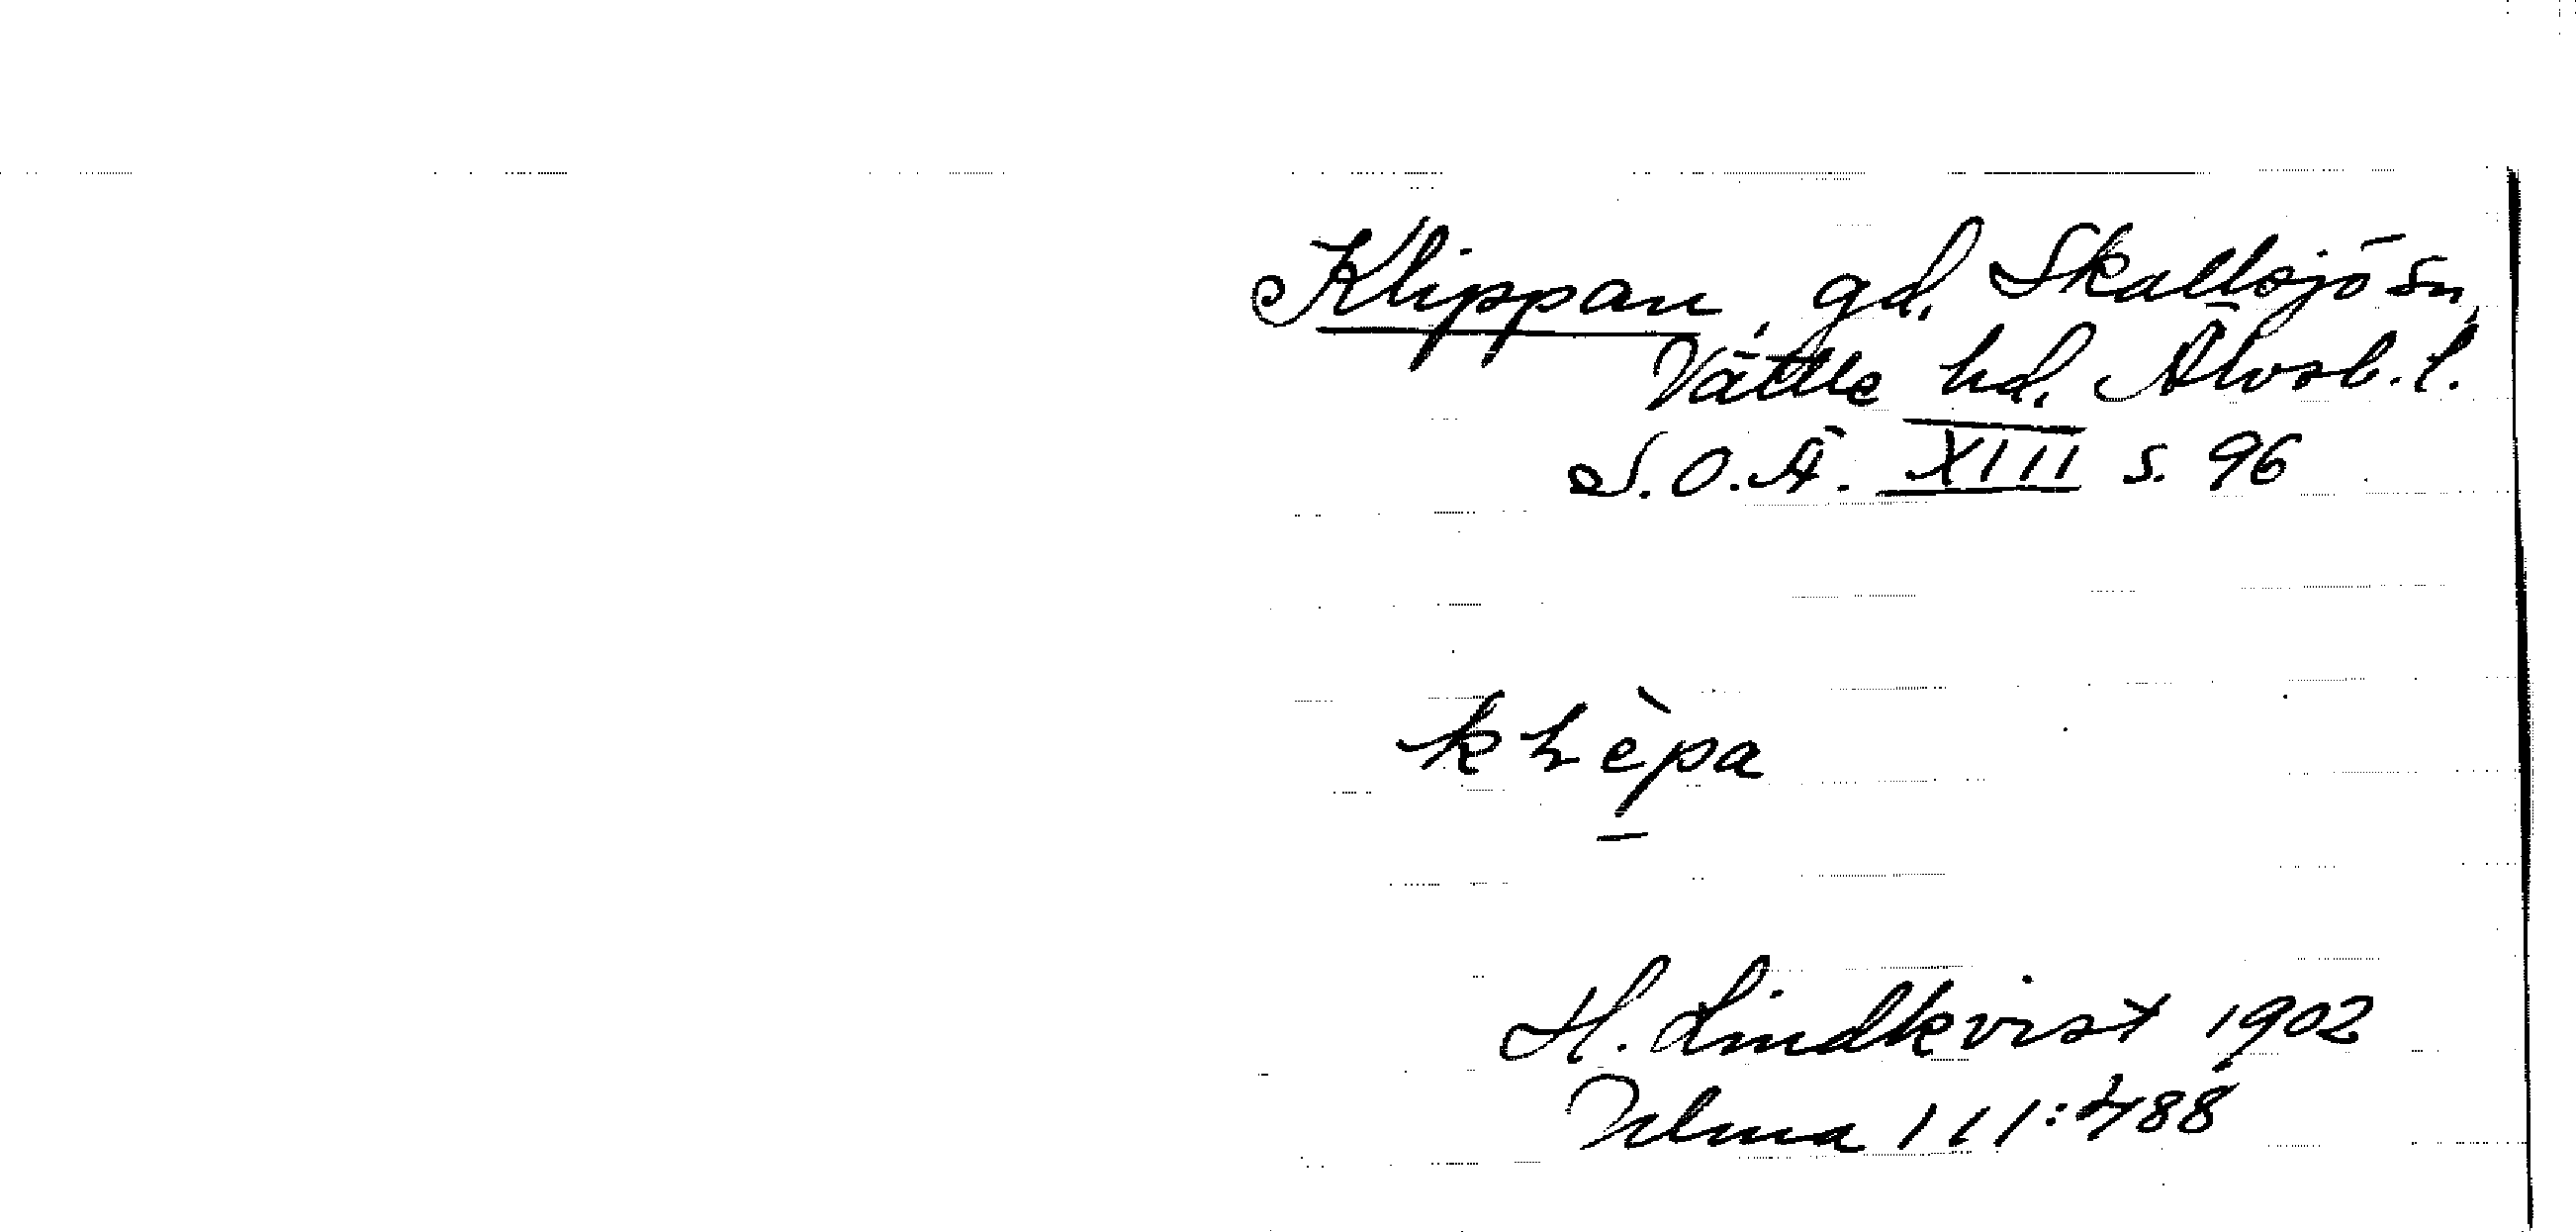 Klippan, gd. Skallsjö sn,
Vättle hd. Älvsb. l.
S.O.Ä. XIII s. 96
kLèpa
H. Lindkvist 1902
Ulma 111:488